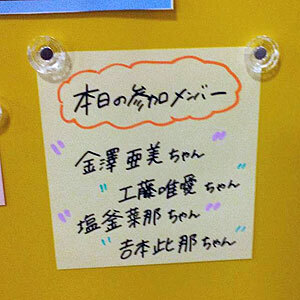 本日の参加メンバー
金澤亜美ちゃん
工藤唯愛ちゃん
塩釜菜那ちゃん
吉本此那ちゃん